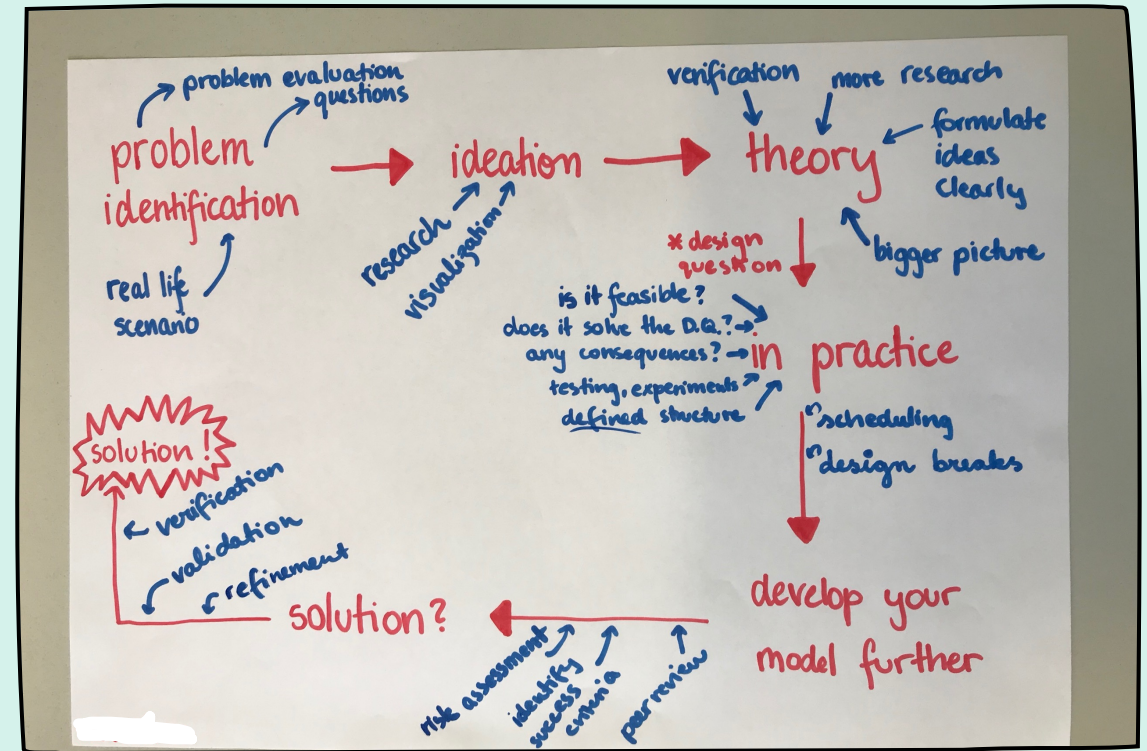 problem evaluation
questions
problem
identification
real life
scenario
ideation
research
visualization
verification
more research
theory
formulate
ideas
clearly
bigger picture
* design
question
is it feasible?
does it solve the D.Q.?
any consequences?
testing, experiments
defined structure
in practice
scheduling
design breaks
develop your
model further
risk assessment
identify
success
criteria
peer review
solution?
refinement
validation
verification
solution!